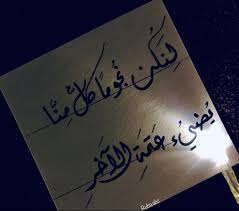 لِنَكُن نُجُومًا كُلٌّ مِنَّا
يُضِيُء عَتمَةِ الآخَرِ